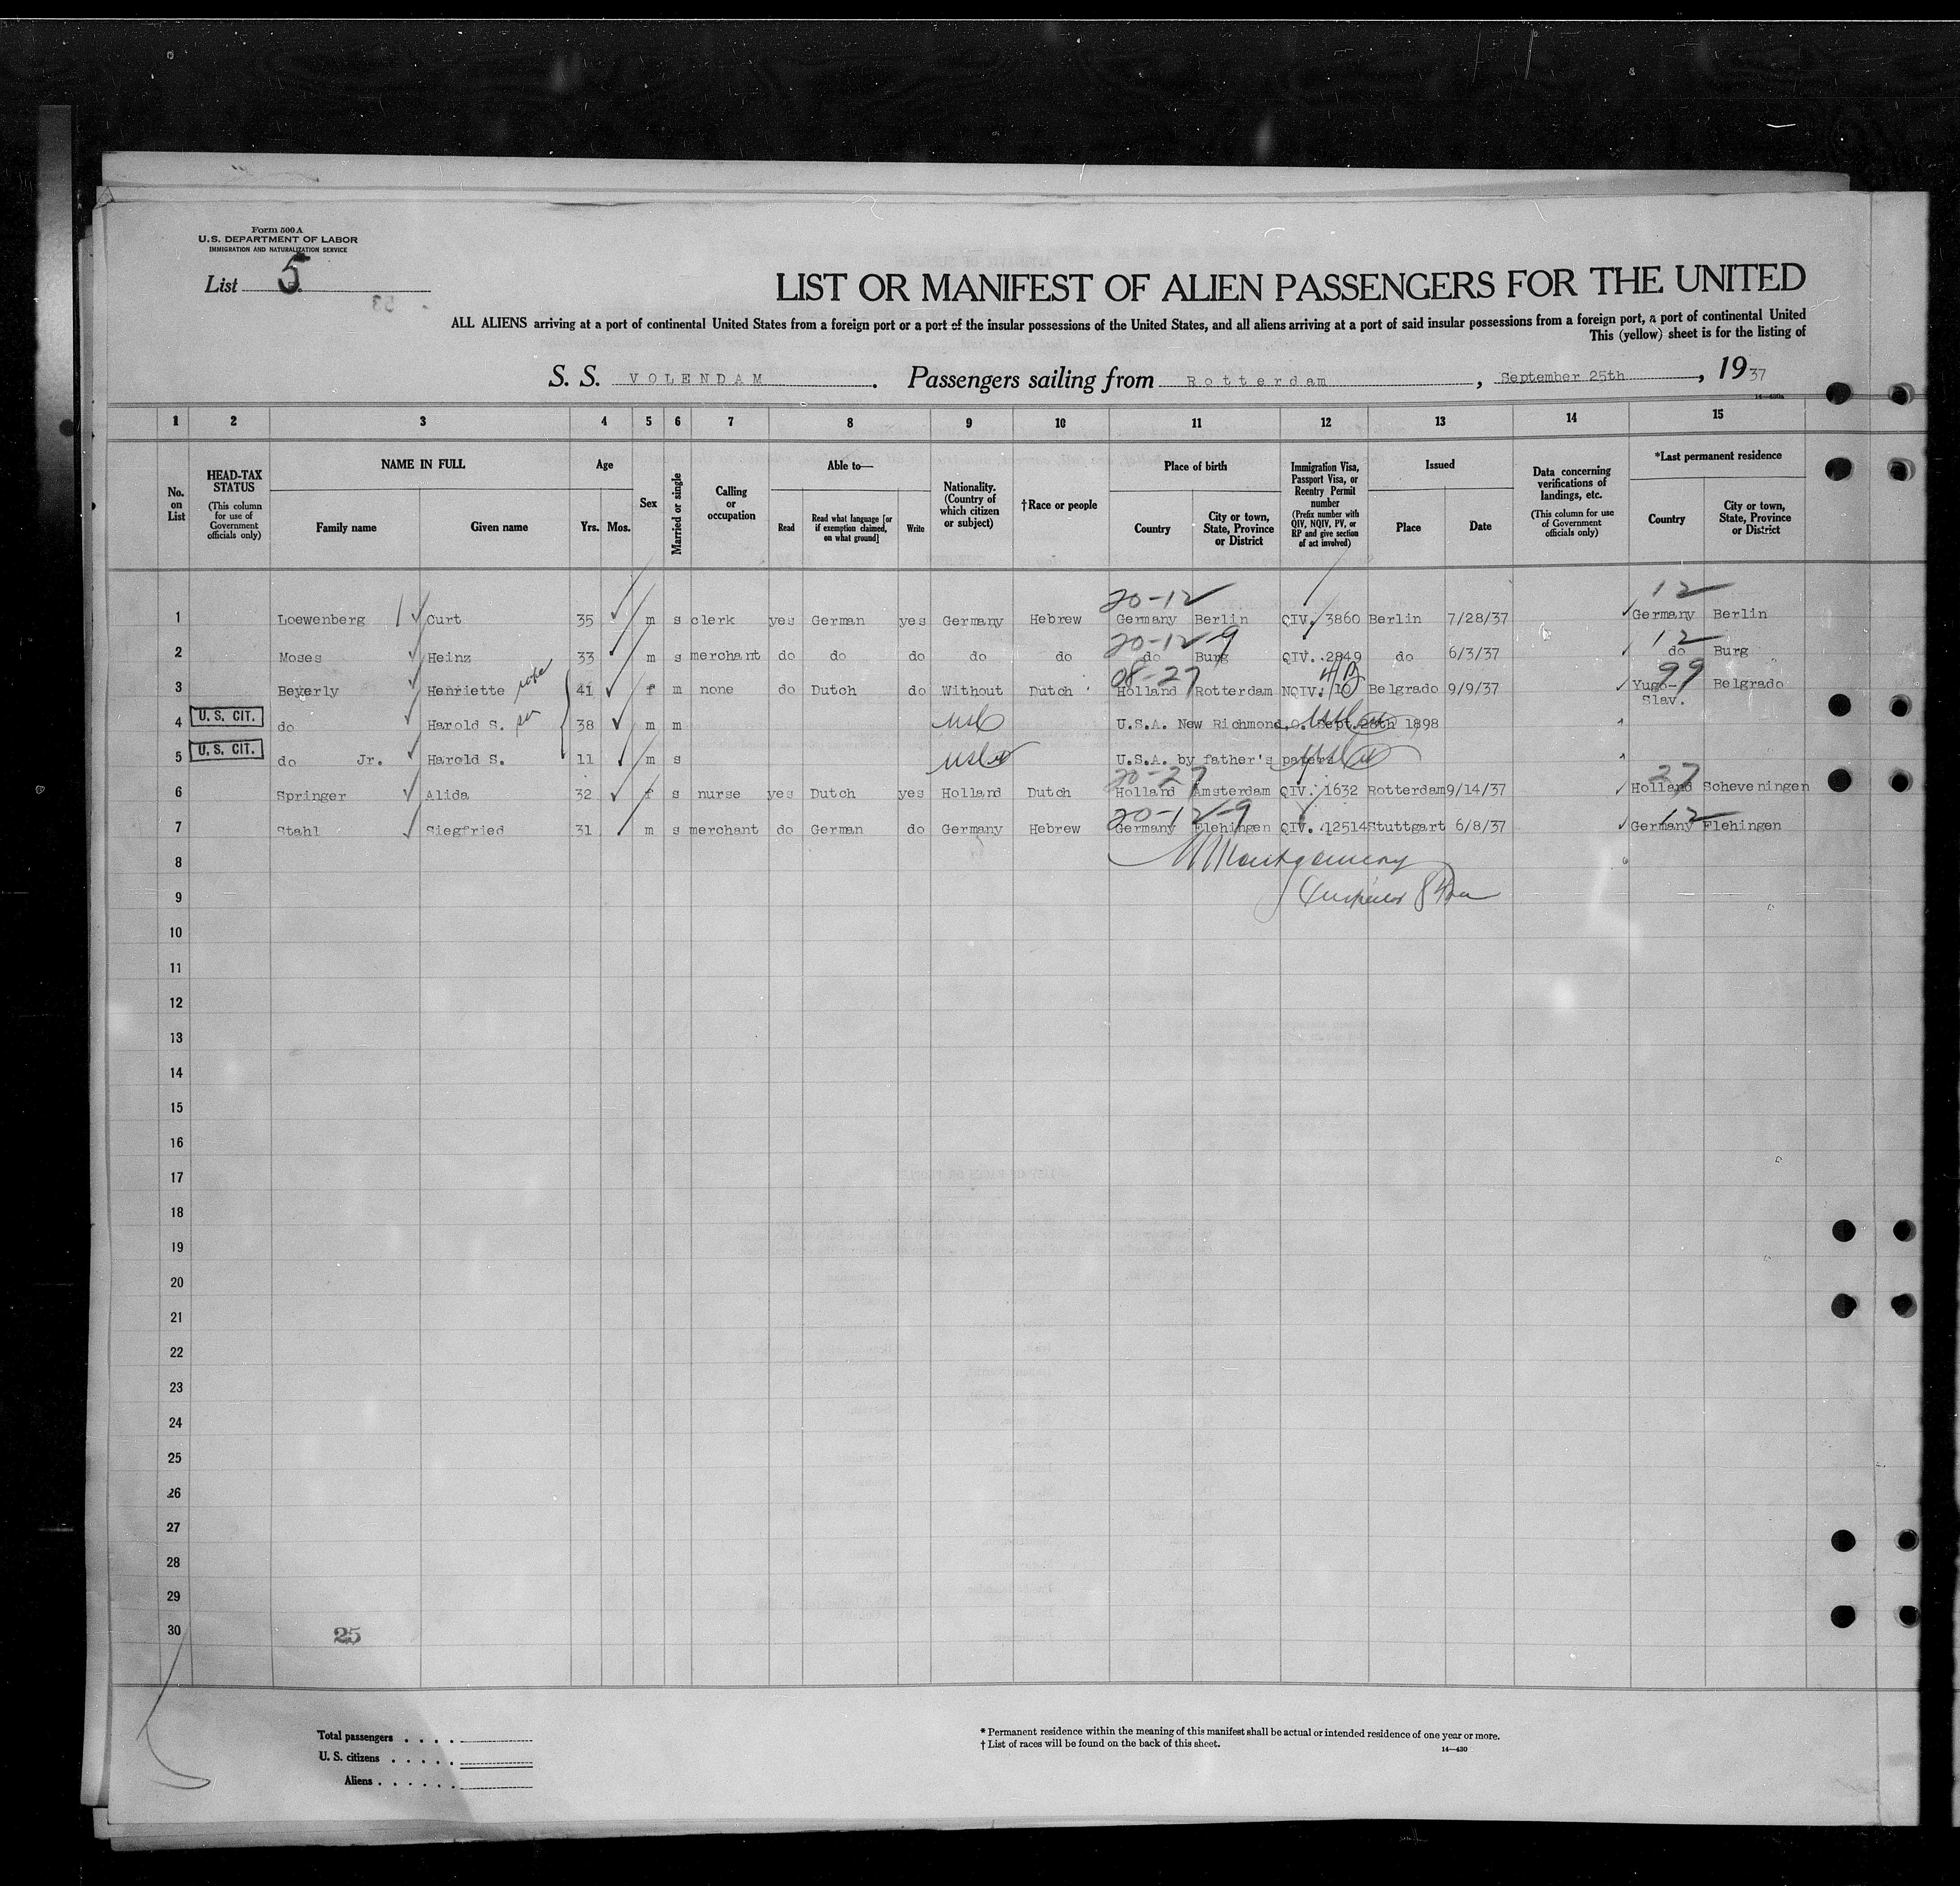 Form 500 A
U.S. DEPARTMENT OF LABOR
IMMIGRATION AND NATURALIZATION SERVICE
List 5
LIST OR MANIFEST OF ALIEN PASSENGERS FOR THE UNITED
ALL ALIENS arriving at a port of continental United States from a foreign port or a port of the insular possessions of the United States, and all aliens arriving at a port of said insular possessions from a foreign port, a port of continental United
This (yellow) sheet is for the listing of
S. S. VOLENDAM. Passengers sailing from Rotterdam, September 25th, 1937
14—430a
1 2 3 4 5 6 7 8 9 10 11 12 13 14 15
No. on List
HEAD-TAX STATUS (This column for use of Government officials only)
NAME IN FULL
Family name Given name
Age
Yrs. Mos.
Sex
Married or single
Calling or occupation
Able to—
Read Read what language [or if exemption claimed, on what ground] Write
Nationality. (Country of which citizen or subject)
†Race or people
Place of birth
Country City or town, State, Province or District
Immigration Visa, Passport Visa, or Reentry Permit number (Prefix number with QIV, NQIV, PV, or RP and give section of act involved)
Issued
Place Date
Data concerning verifications of landings, etc. (This column for use of Government officials only)
*Last permanent residence
Country City or town, State, Province or District
20-12 12
1 Loewenberg Curt 35 m s clerk yes German yes Germany Hebrew Germany Berlin QIV. 3860 Berlin 7/28/37 Germany Berlin
20-12-9 12
2 Moses Heinz 33 m s merchant do do do do do do Burg QIV. 2849 do 6/3/37 do Burg
08-27 99
3 Beyerly Henriette 41 f m none do Dutch do Without Dutch Holland Rotterdam NQIV. 10 Belgrado 9/9/37 Yugo-Slav. Belgrado
4 U. S. CIT. do Harold S. 38 m m U.S.A. New Richmond,O. Sept.28th 1898
5 U. S. CIT. do Jr. Harold S. 11 m s U.S.A. by father's papers
20-27 27
6 Springer Alida 32 f s nurse yes Dutch yes Holland Dutch Holland Amsterdam QIV. 1632 Rotterdam 9/14/37 Holland Scheveningen
20-12-9 12
7 Stahl Siegfried 31 m s merchant do German do Germany Hebrew Germany Flehingen QIV. 12514 Stuttgart 6/8/37 Germany Flehingen
8 Montgomery
9
10
11
12
13
14
15
16
17
18
19
20
21
22
23
24
25
26
27
28
29
30 25
Total passengers
U. S. citizens
Aliens
* Permanent residence within the meaning of this manifest shall be actual or intended residence of one year or more.
† List of races will be found on the back of this sheet.
14—430